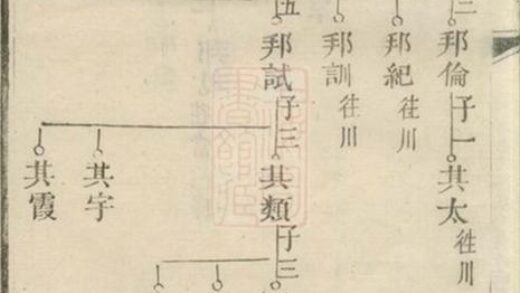 邦倫子一
其太徃川
邦紀徃川
邦訓徃川
五
邦試子三
其類子三
其宇
其霞